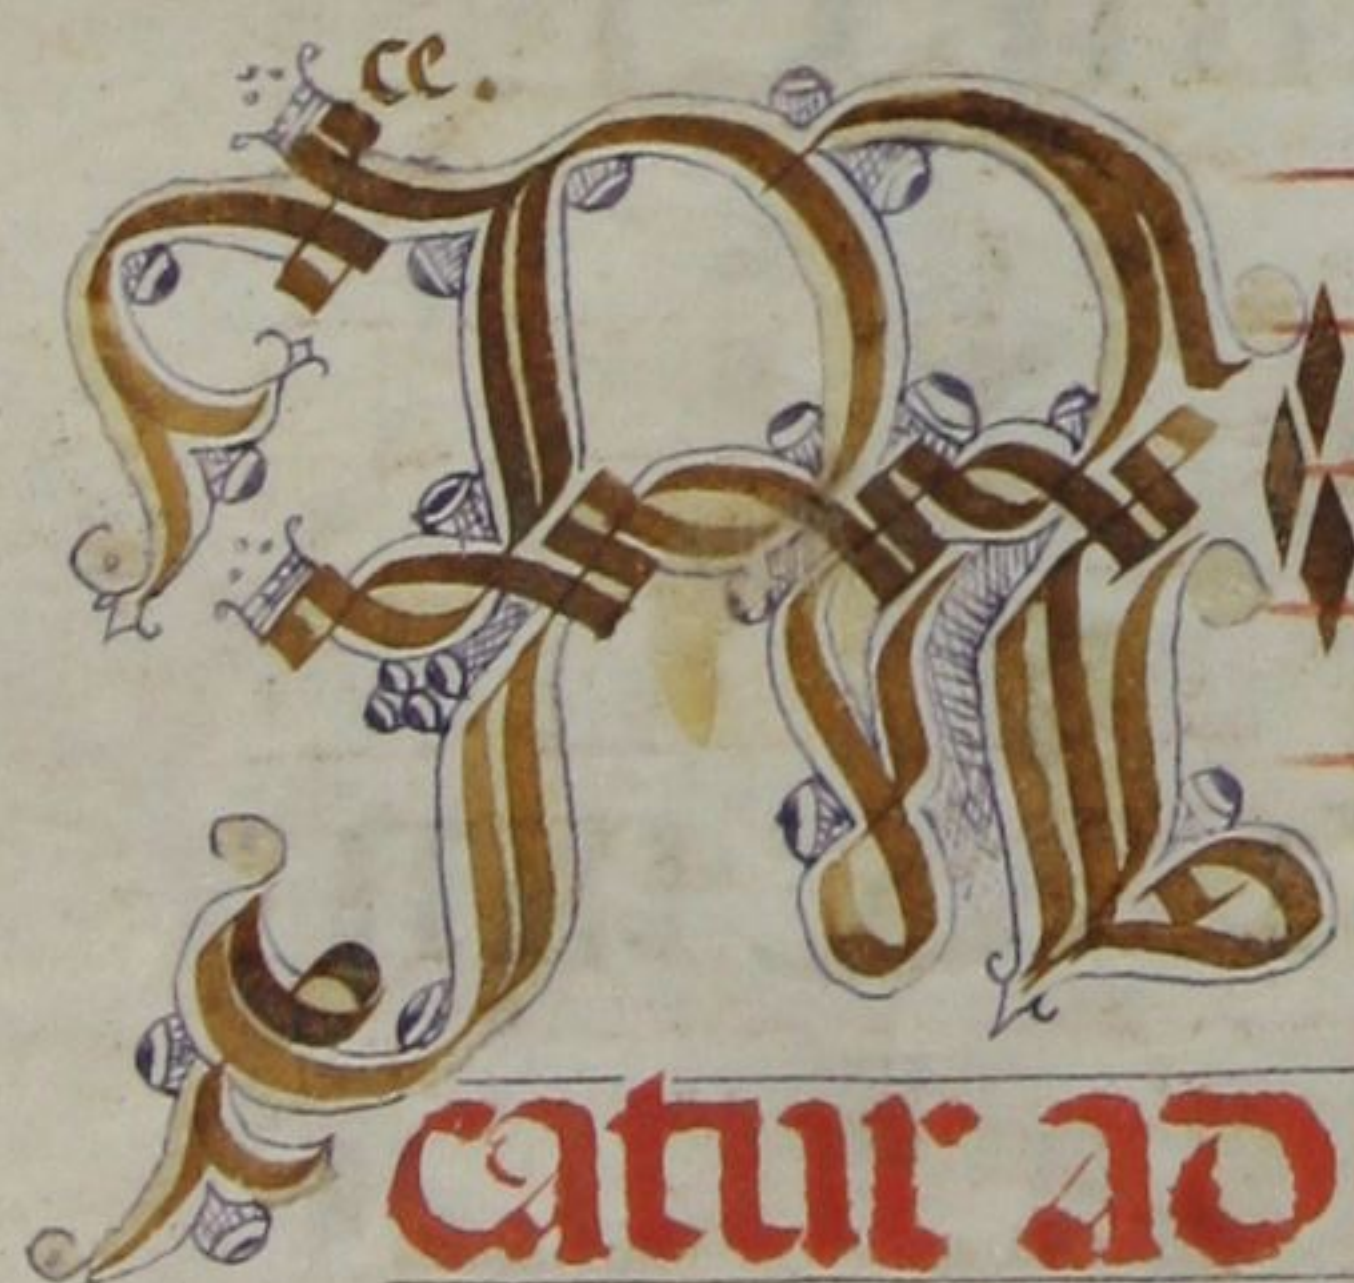 ce.
catur ad